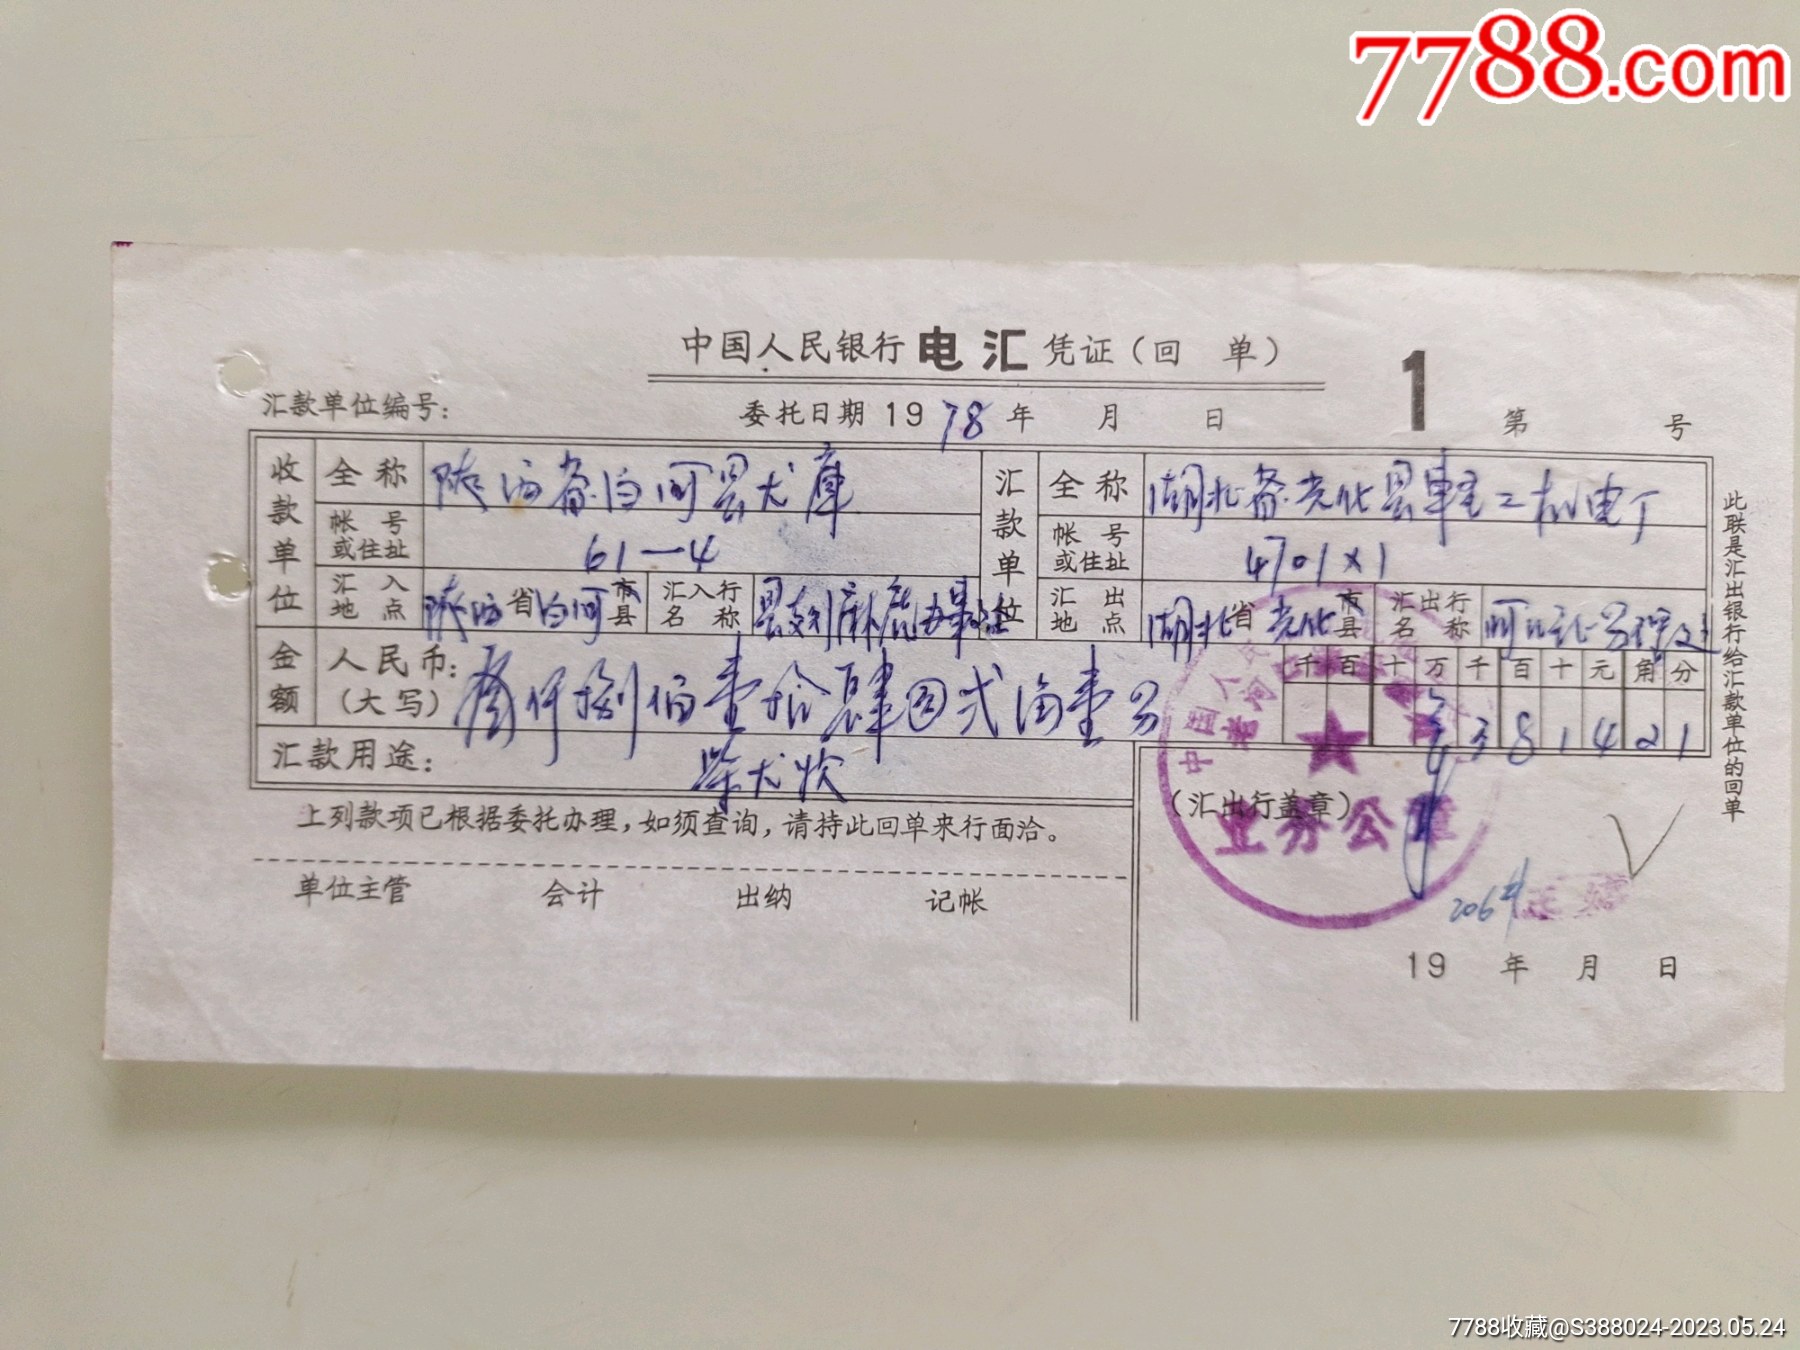 7788.com
中国人民银行电汇凭证(回 单)
1
汇款单位编号:
委托日期 1978年 月 日
第 号
收款单位
全 称
陕西省白河县
库
汇款单位
全 称
湖北省光化县
帐 号
或住址
61—4
帐 号
或住址
4701×1
汇 入
地 点
陕西省白河市县
汇入行
名 称
汇 出
地 点
湖北省光化市县
汇出行
名 称
金额
人民币:
(大写)
叁仟捌佰壹拾肆圆弍角壹分
千百十万千百十元角分
¥381421
汇款用途:
上列款项已根据委托办理,如须查询,请持此回单来行面洽。
(汇出行盖章)
业务公章
单位主管 会计 出纳 记帐
19 年 月 日
此联是汇出银行给汇款单位的回单
7788收藏@S388024-2023.05.24